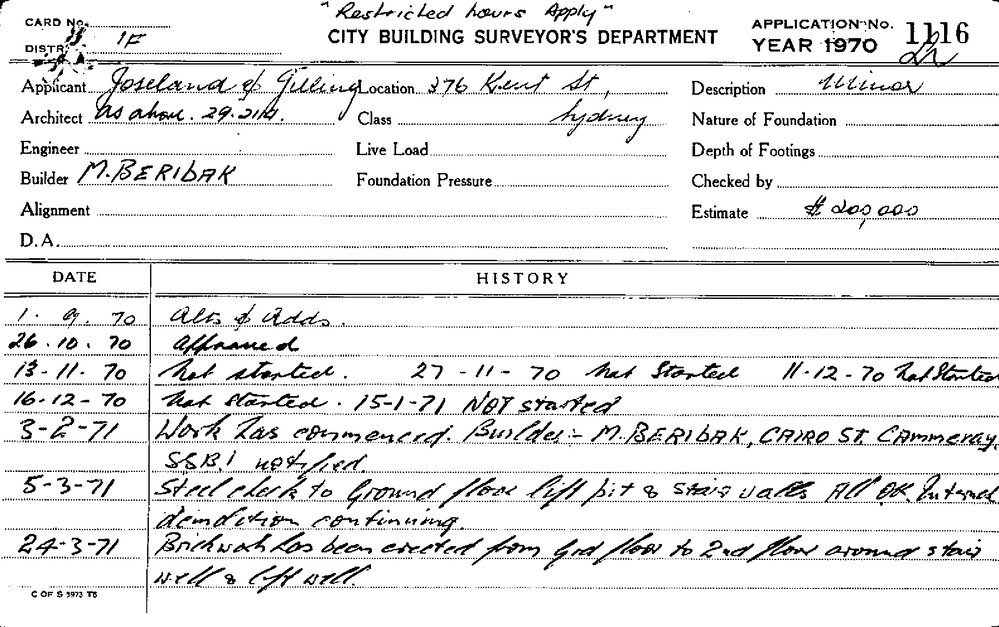 "Restricted hours Apply"
CARD No. CITY BUILDING SURVEYOR'S DEPARTMENT APPLICATION No. 1116
DISTR. 1F YEAR 1970
Applicant Joseland & Gilling Location 376 Kent St, Description Minor
Architect As above. 29.2114. Class Sydney Nature of Foundation
Engineer Live Load Depth of Footings
Builder M. BERIBAK Foundation Pressure Checked by
Alignment Estimate $200,000
D.A.
DATE HISTORY
1. 9. 70 Alts & Adds.
26. 10. 70 Approved
13-11. 70 Not started. 27-11-70 Not Started 11-12-70 Not Started
16-12-70 Not started. 15-1-71 NOT started
3-2-71 Work has commenced. Builder:- M. BERIBAK, CAIRO ST. CAMMERAY.
S.S.B.! notified.
5-3-71 Steel check to Ground floor lift pit & stair walls All OK. Internal
demolition continuing.
24-3-71 Brickwork has been erected from Grd floor to 2nd floor around stair
well & lift well.
C OF S 5973 T5